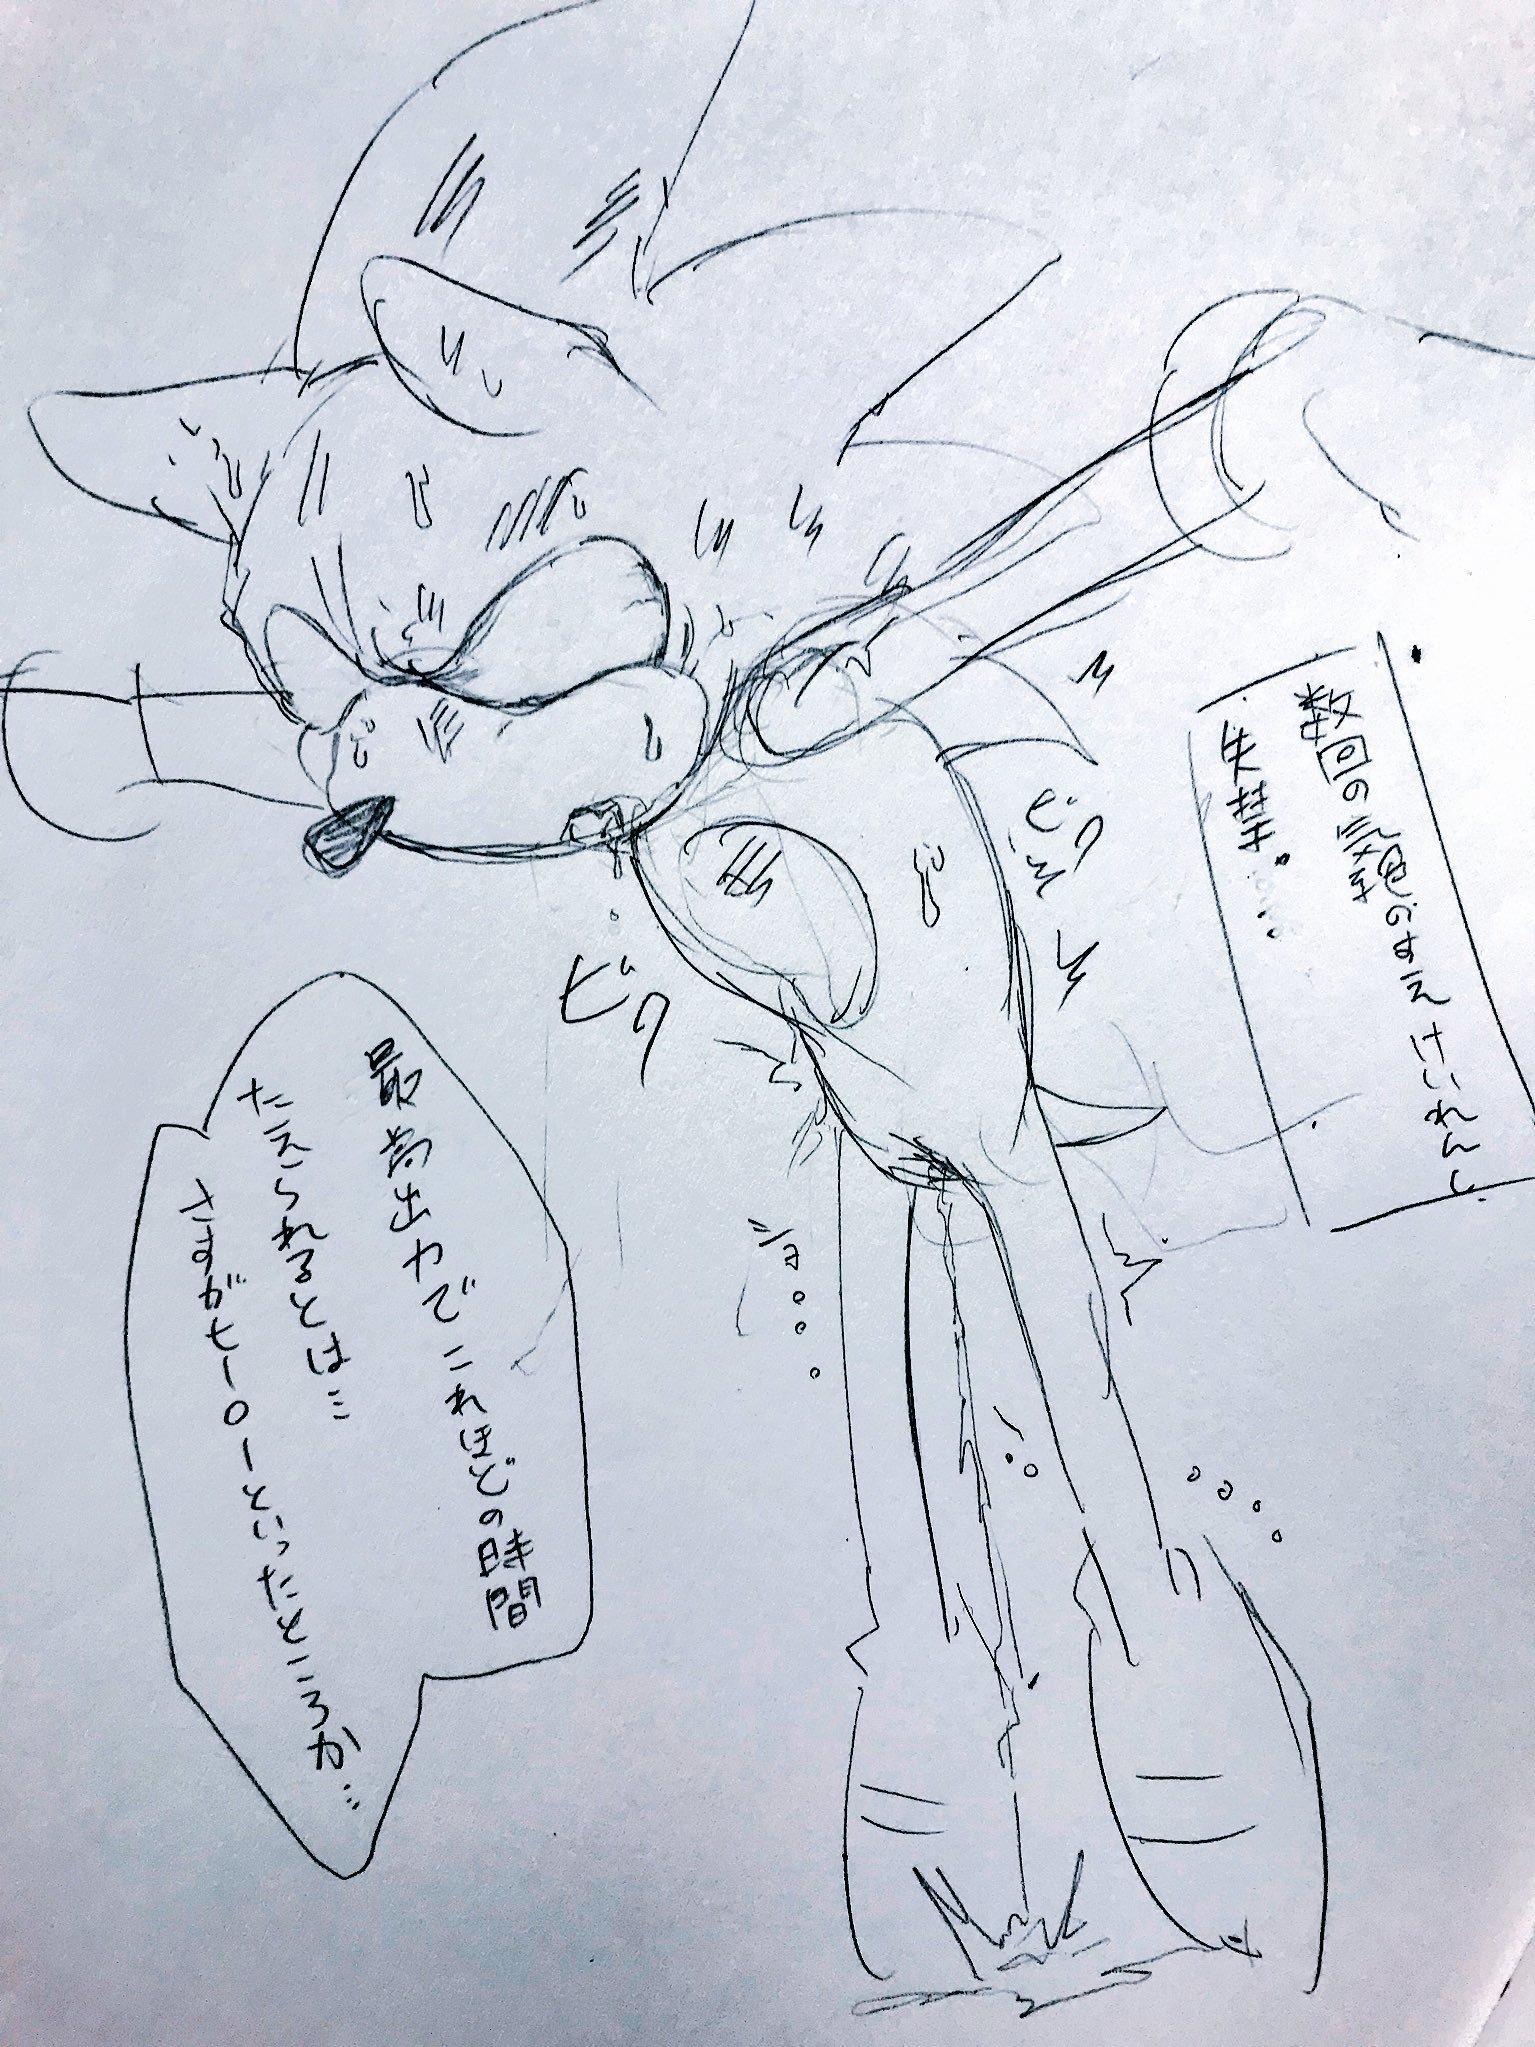 数回の気絶のすえけいれんし
失禁。……
ビクッ
ビク
ショ。。。
最高出力でこれほどの時間
たえられるとは…
さすがヒーローといったところか…